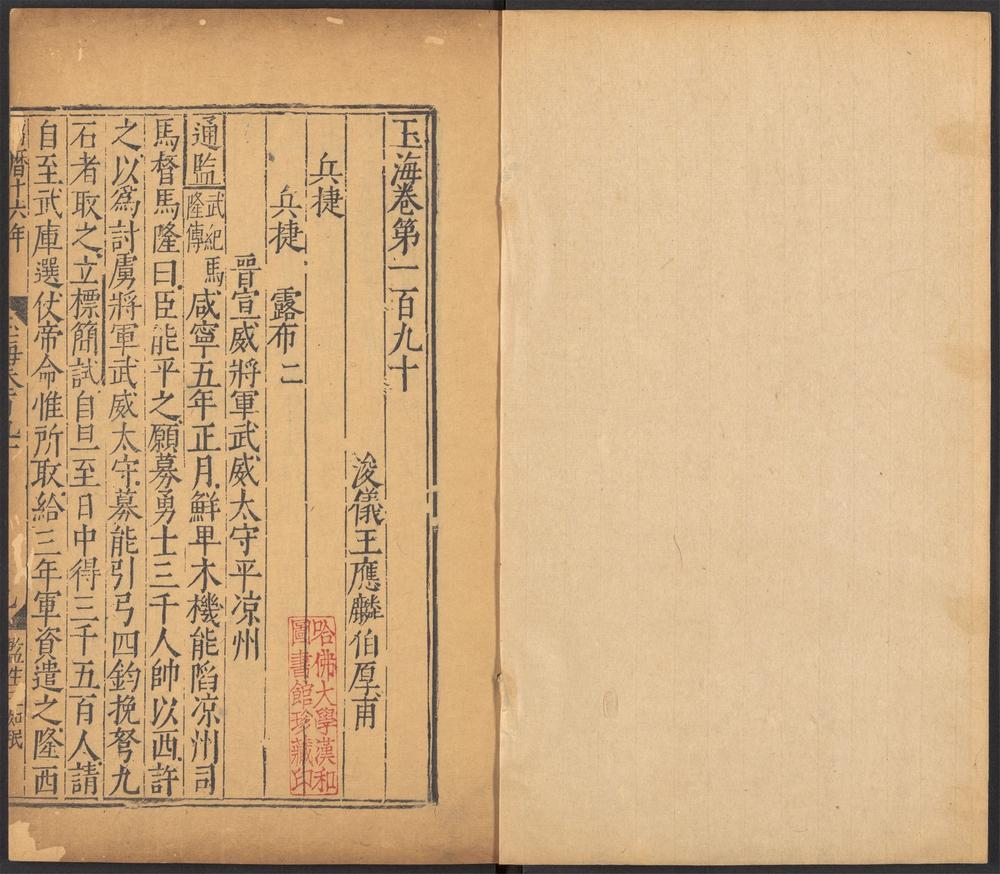 玉海卷第一百九十
浚儀王應麟伯厚甫
兵捷
兵捷 露布二
晉宣威將軍武威太守平凉州
通監武紀馬隆傳咸寧五年正月鮮卑木機能陷凉州司
馬督馬隆曰臣能平之願募勇士三千人帥以西許
之以爲討虜將軍武威太守募能引弓四鈞挽弩九
石者取之立標簡試自旦至日中得三千五百人請
自至武庫選仗帝命惟所取給三年軍資遣之隆西
曆十六年
監生
哈佛大學漢和
圖書館珍藏印